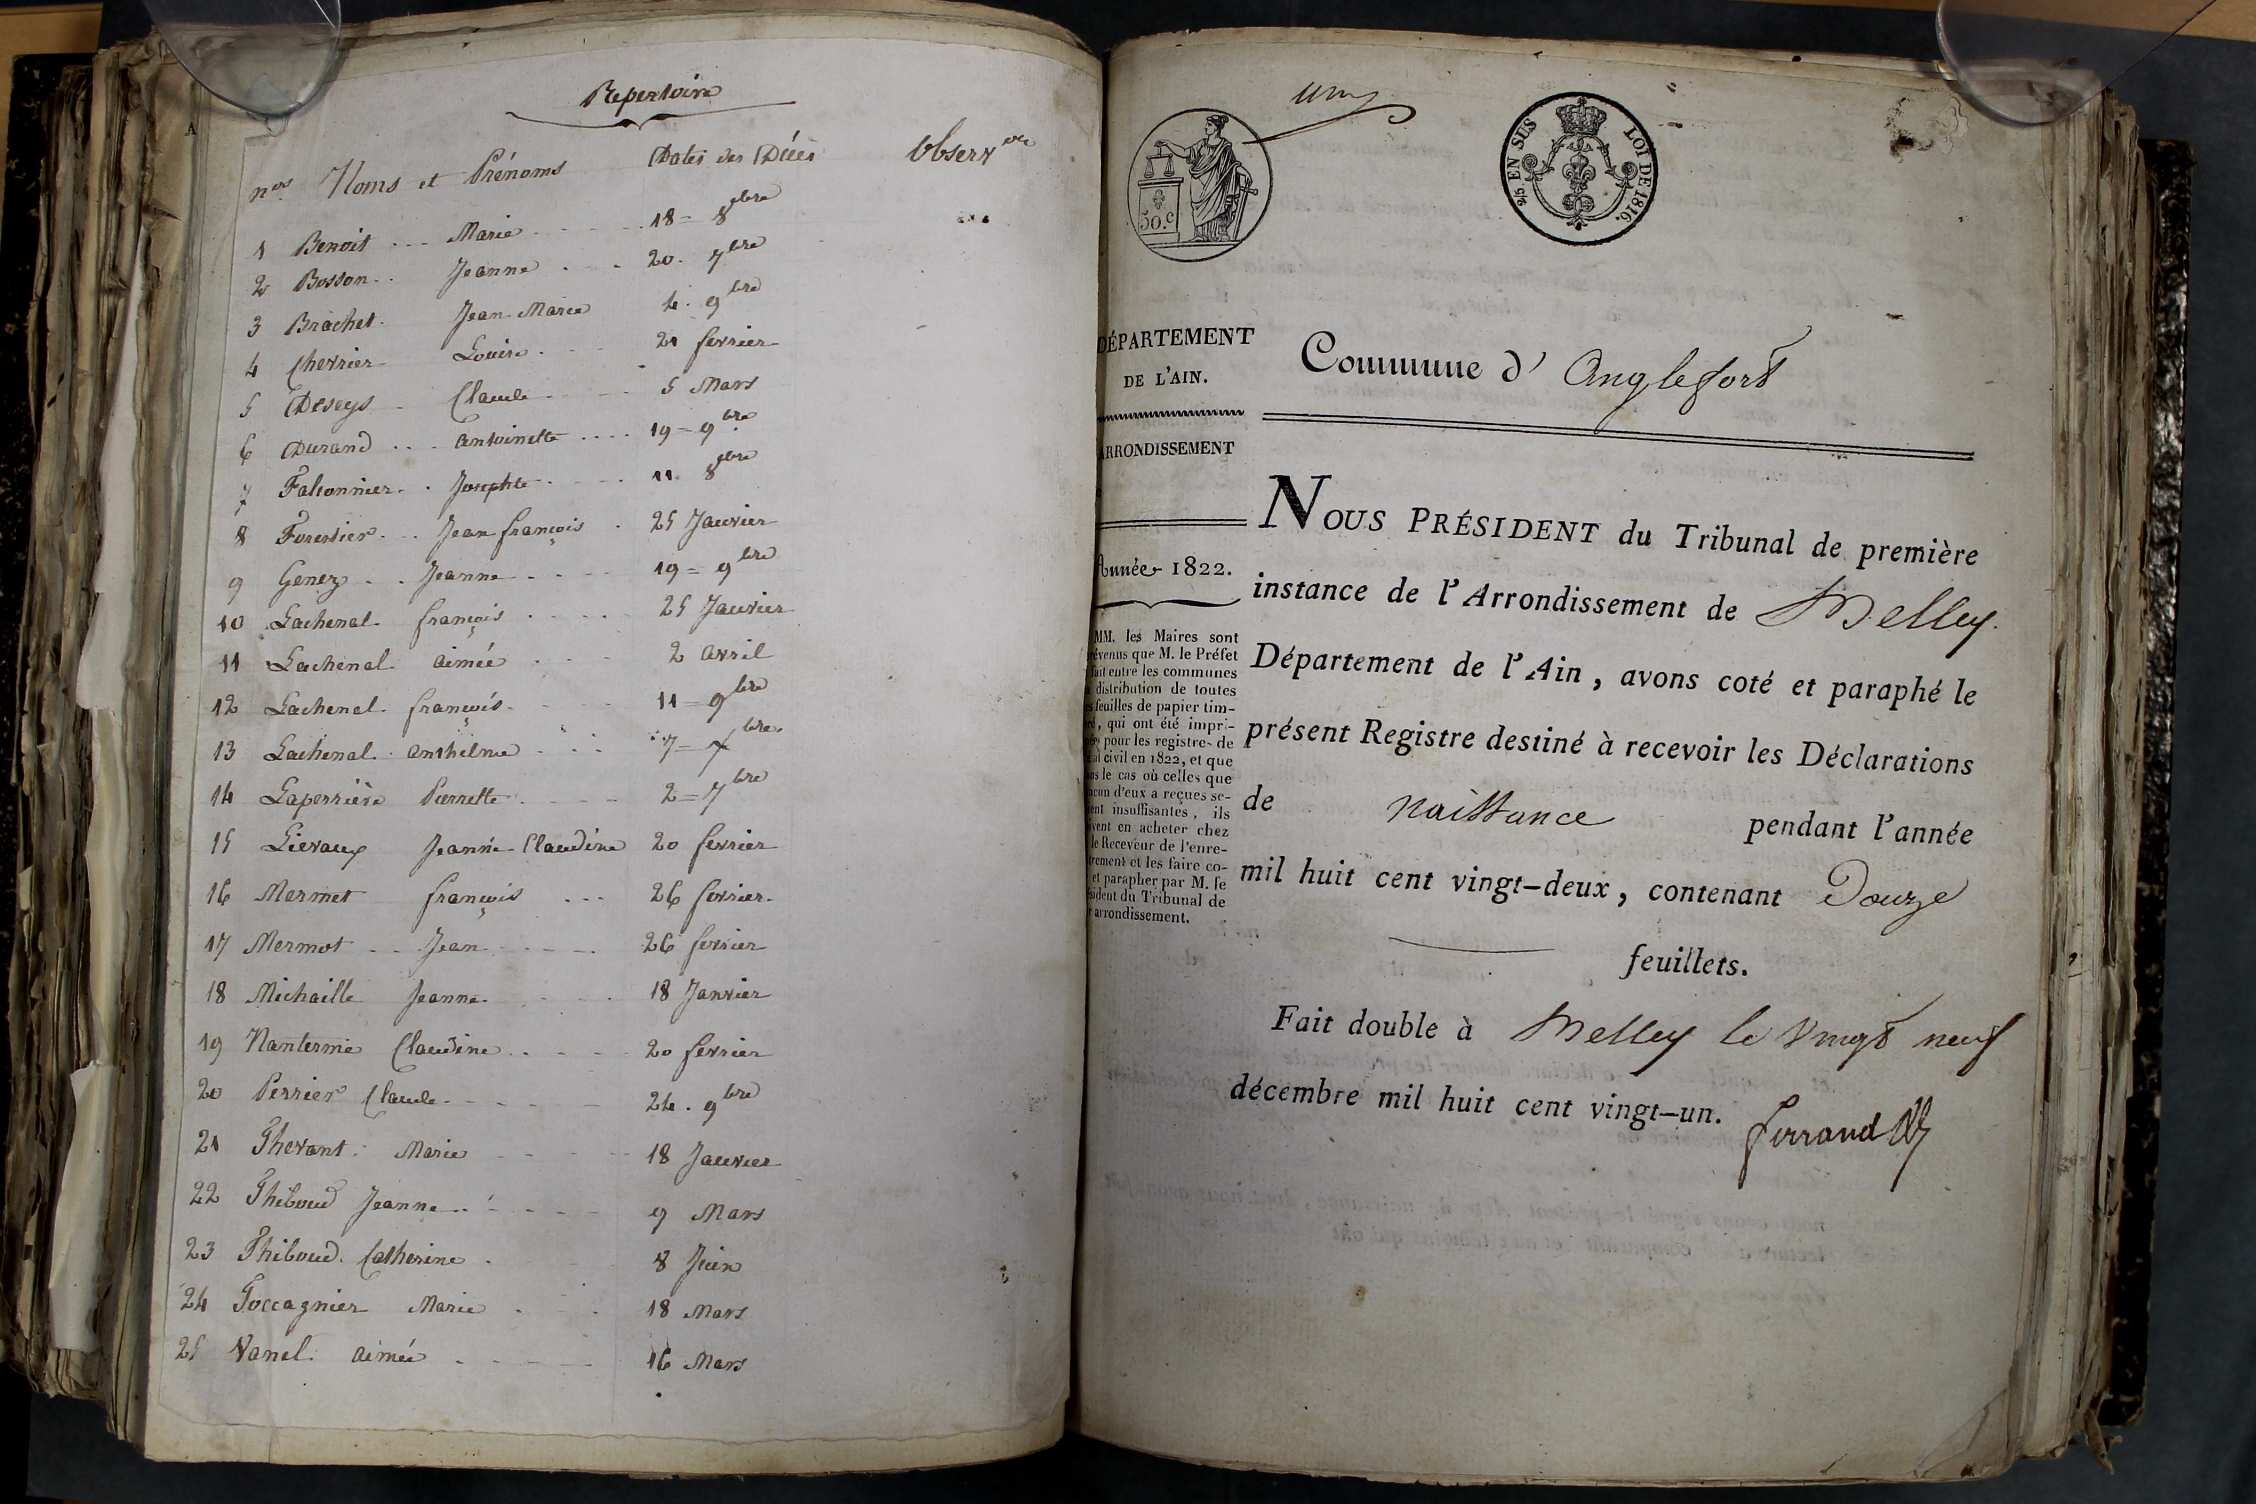 Repertoire
nos Noms et Prénoms Dates des Décès Observons
1 Benoit Marie 18 = 8bre
2 Bosson Jeanne 20. 7bre
3 Brachet Jean Marie 4. 9bre
4 Chevrier Louise 21 fevrier
5 Deseys Claude 5 Mars
6 Durand antoinette 19 = 9bre
7 Falconnier Josephte 11. 8bre
8 Forestier Jean françois 25 Janvier
9 Genez Jeanne 19 = 9bre
10 Lachenal françois 25 Janvier
11 Lachenal aimée 2 avril
12 Lachenal françois 11 = 9bre
13 Lachenal anthelme 7 = 7bre
14 Laperrière Pierrette 2 = 7bre
15 Lievaux Jeanne Claudine 20 fevrier
16 Mermet françois 26 fevrier
17 Mermot Jean 26 fevrier
18 Michaille Jeanne 18 Janvier
19 Nanterme Claudine 20 fevrier
20 Perrier Claude 24. 9bre
21 Thevant Marie 18 Janvier
22 Thiboud Jeanne 9 Mars
23 Thiboud Catherine 8 Juin
24 Toccagnier Marie 18 Mars
25 Vanel aimée 16 Mars
A
un
50.c
2/5 EN SUS LOI DE 1816.
DÉPARTEMENT
DE L'AIN.
ARRONDISSEMENT
Année 1822.
MM. les Maires sont
prévenus que M. le Préfet
fait entre les communes
distribution de toutes
feuilles de papier tim-
, qui ont été impri-
pour les registres de
civil en 1822, et que
le cas où celles que
d'eux a reçues se-
insuffisantes, ils
en acheter chez
le Receveur de l'enre-
et les faire co-
et parapher par M. le
du Tribunal de
arrondissement.
Commune d' Anglefort
NOUS PRÉSIDENT du Tribunal de première
instance de l'Arrondissement de Belley.
Département de l'Ain, avons coté et paraphé le
présent Registre destiné à recevoir les Déclarations
de naissance pendant l'année
mil huit cent vingt-deux, contenant Douze
feuillets.
Fait double à Belley le vingt neuf
décembre mil huit cent vingt-un.
ferrand